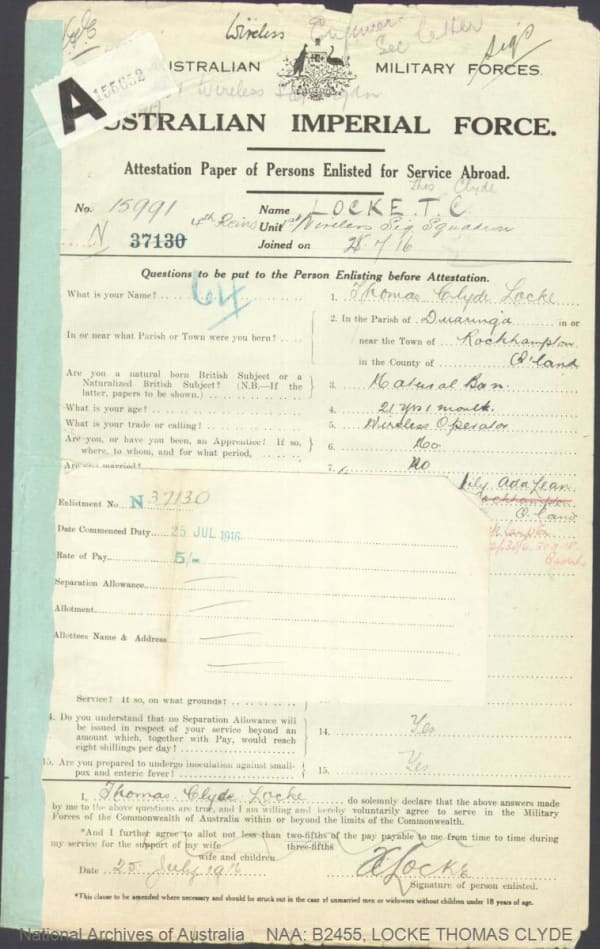 Wireless Engineer
See letter
Sig
A 155652
AUSTRALIAN MILITARY FORCES.
Wireless
AUSTRALIAN IMPERIAL FORCE.
Attestation Paper of Persons Enlisted for Service Abroad.
Thos Clyde
No. 15991 Name LOCKE. T. C.
N 37130 4th Reins Unit 1st Wireless Sig Squadron
Joined on 25.7.16
Questions to be put to the Person Enlisting before Attestation.
64
What is your Name? 1. Thomas Clyde Locke
In or near what Parish or Town were you born? 2. In the Parish of Duaringa in or
near the Town of Rockhampton
in the County of Q'land
Are you a natural born British Subject or a
Naturalized British Subject? (N.B.—If the
latter, papers to be shown.) 3. Natural Born.
What is your age? 4. 21 yrs 1 month.
What is your trade or calling? 5. Wireless Operator
Are you, or have you been, an Apprentice? If so,
where, to whom, and for what period, 6. No
Are you married? 7. No
Lily Ada Jean
Rockhampton
Q'land
Enlistment No. N 37130
Date Commenced Duty 25 JUL 1916
Rate of Pay 5/-
Separation Allowance
Allotment
Allottees Name & Address
Service? If so, on what grounds?
14. Do you understand that no Separation Allowance will
be issued in respect of your service beyond an
amount which, together with Pay, would reach
eight shillings per day? 14. Yes
15. Are you prepared to undergo inoculation against small-
pox and enteric fever? 15. Yes
I, Thomas Clyde Locke do solemnly declare that the above answers made
by me to the above questions are true, and I am willing and hereby voluntarily agree to serve in the Military
Forces of the Commonwealth of Australia within or beyond the limits of the Commonwealth.
*And I further agree to allot not less than two-fifths of the pay payable to me from time to time during
three-fifths
my service for the support of my wife
wife and children.
Date 25 July 1916 TCLocke
Signature of person enlisted.
*This clause to be amended where necessary and should be struck out in the case of unmarried men or widowers without children under 18 years of age.
National Archives of Australia NAA: B2455, LOCKE THOMAS CLYDE